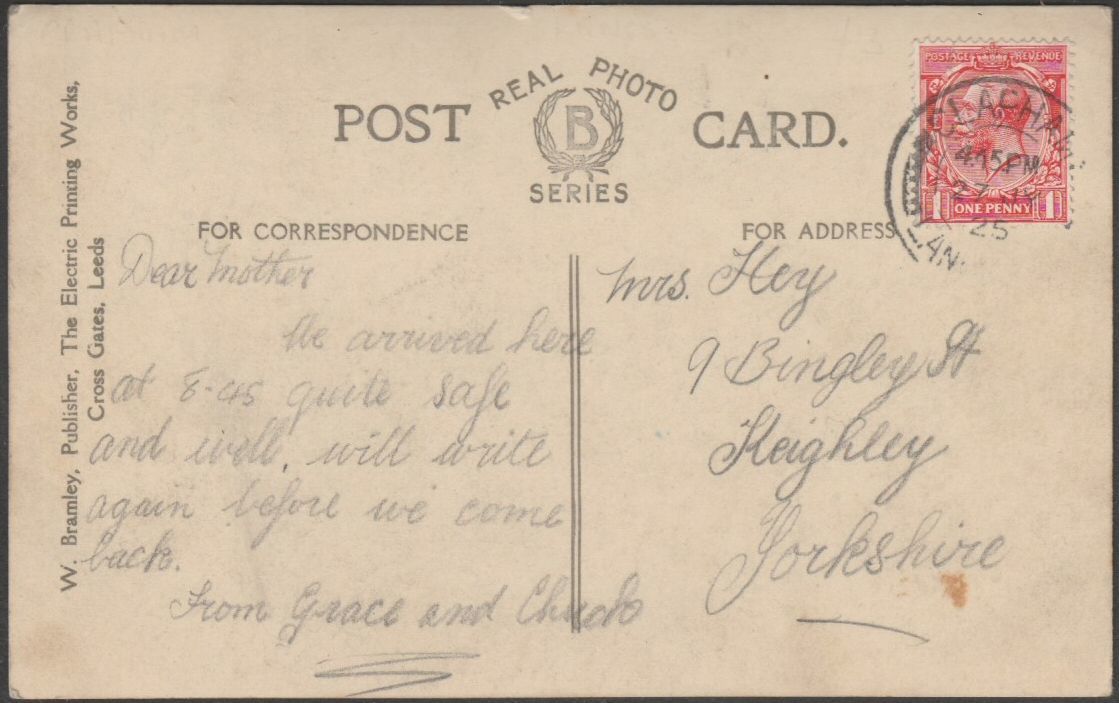 POST CARD.
REAL PHOTO
B
SERIES
POSTAGE REVENUE
CLAPHAM
4.15PM
27
25
LAN
1 ONE PENNY 1
W. Bramley, Publisher, The Electric Printing Works,
Cross Gates, Leeds
FOR CORRESPONDENCE
Dear Mother
We arrived here
at 8-45 quite safe
and well, will write
again before we come
back.
From Grace and
FOR ADDRESS
Mrs. Hey
9 Bingley St
Keighley
Yorkshire